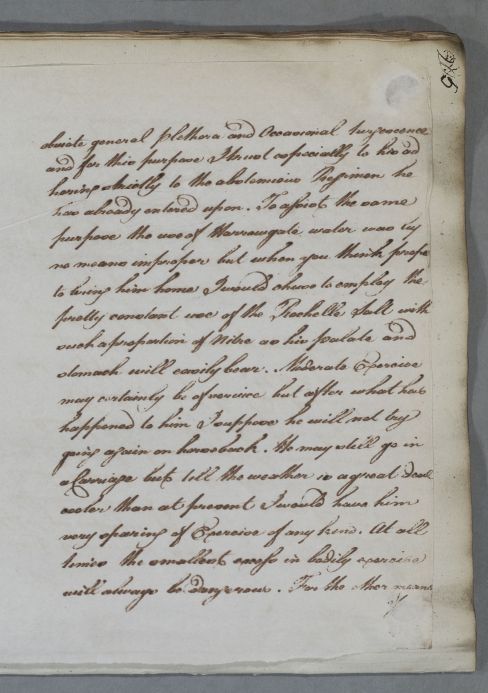 obviate general plethora and Occasional turgescence
and for this purpose I trust especially to his ad
hering strictly to the abstemious Regimen he
has already entered upon. To assist the same
purpose the use of Harrowgate water was by
no means improper but when you think prope
to bring him home I would chuse to employ the
pretty constant use of the Rochelle Salt with
such a proportion of Nitre as his palate and
stomach will easily bear. Moderate Exercise
may certainly be of service but after what has
happened to him I suppose he will not try
going again on horseback. He may still go in
a Carriage but till the weather is a great deal
cooler than at present I would have him
very sparing of Exercise of any kind. At all
times the smallest excess in bodily exercise
will always be dangerous. For the other means
of